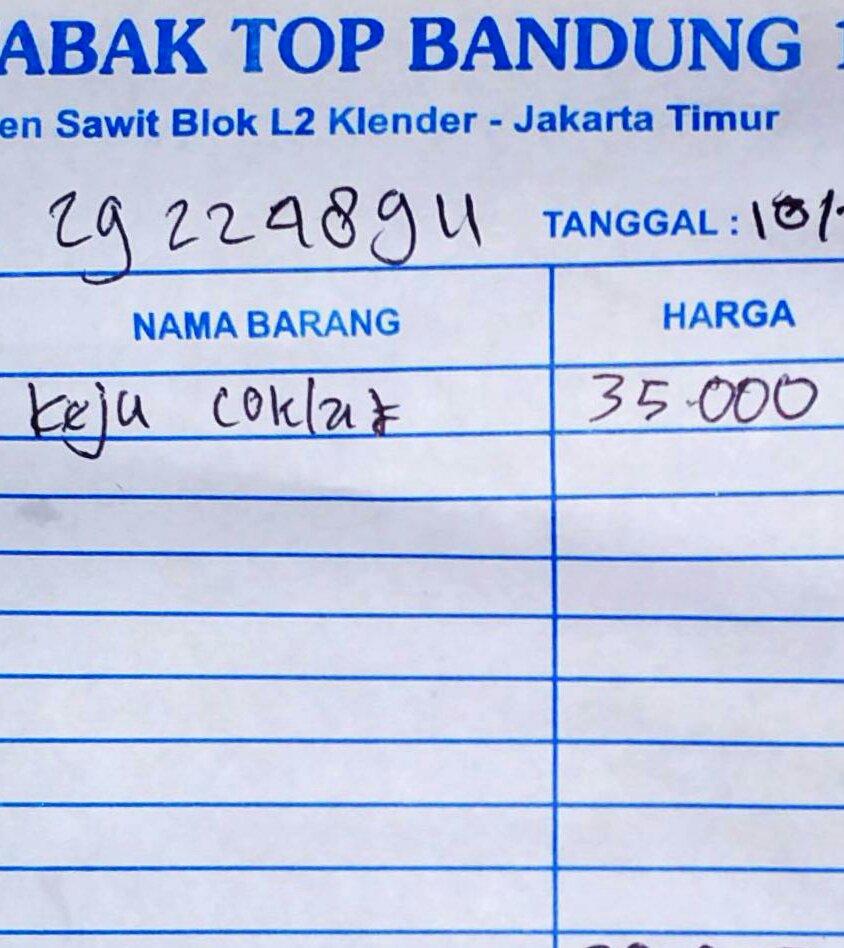 ABAK TOP BANDUNG 1
en Sawit Blok L2 Klender - Jakarta Timur
29 224894 TANGGAL : 10/
NAMA BARANG HARGA
Keju Coklat 35.000